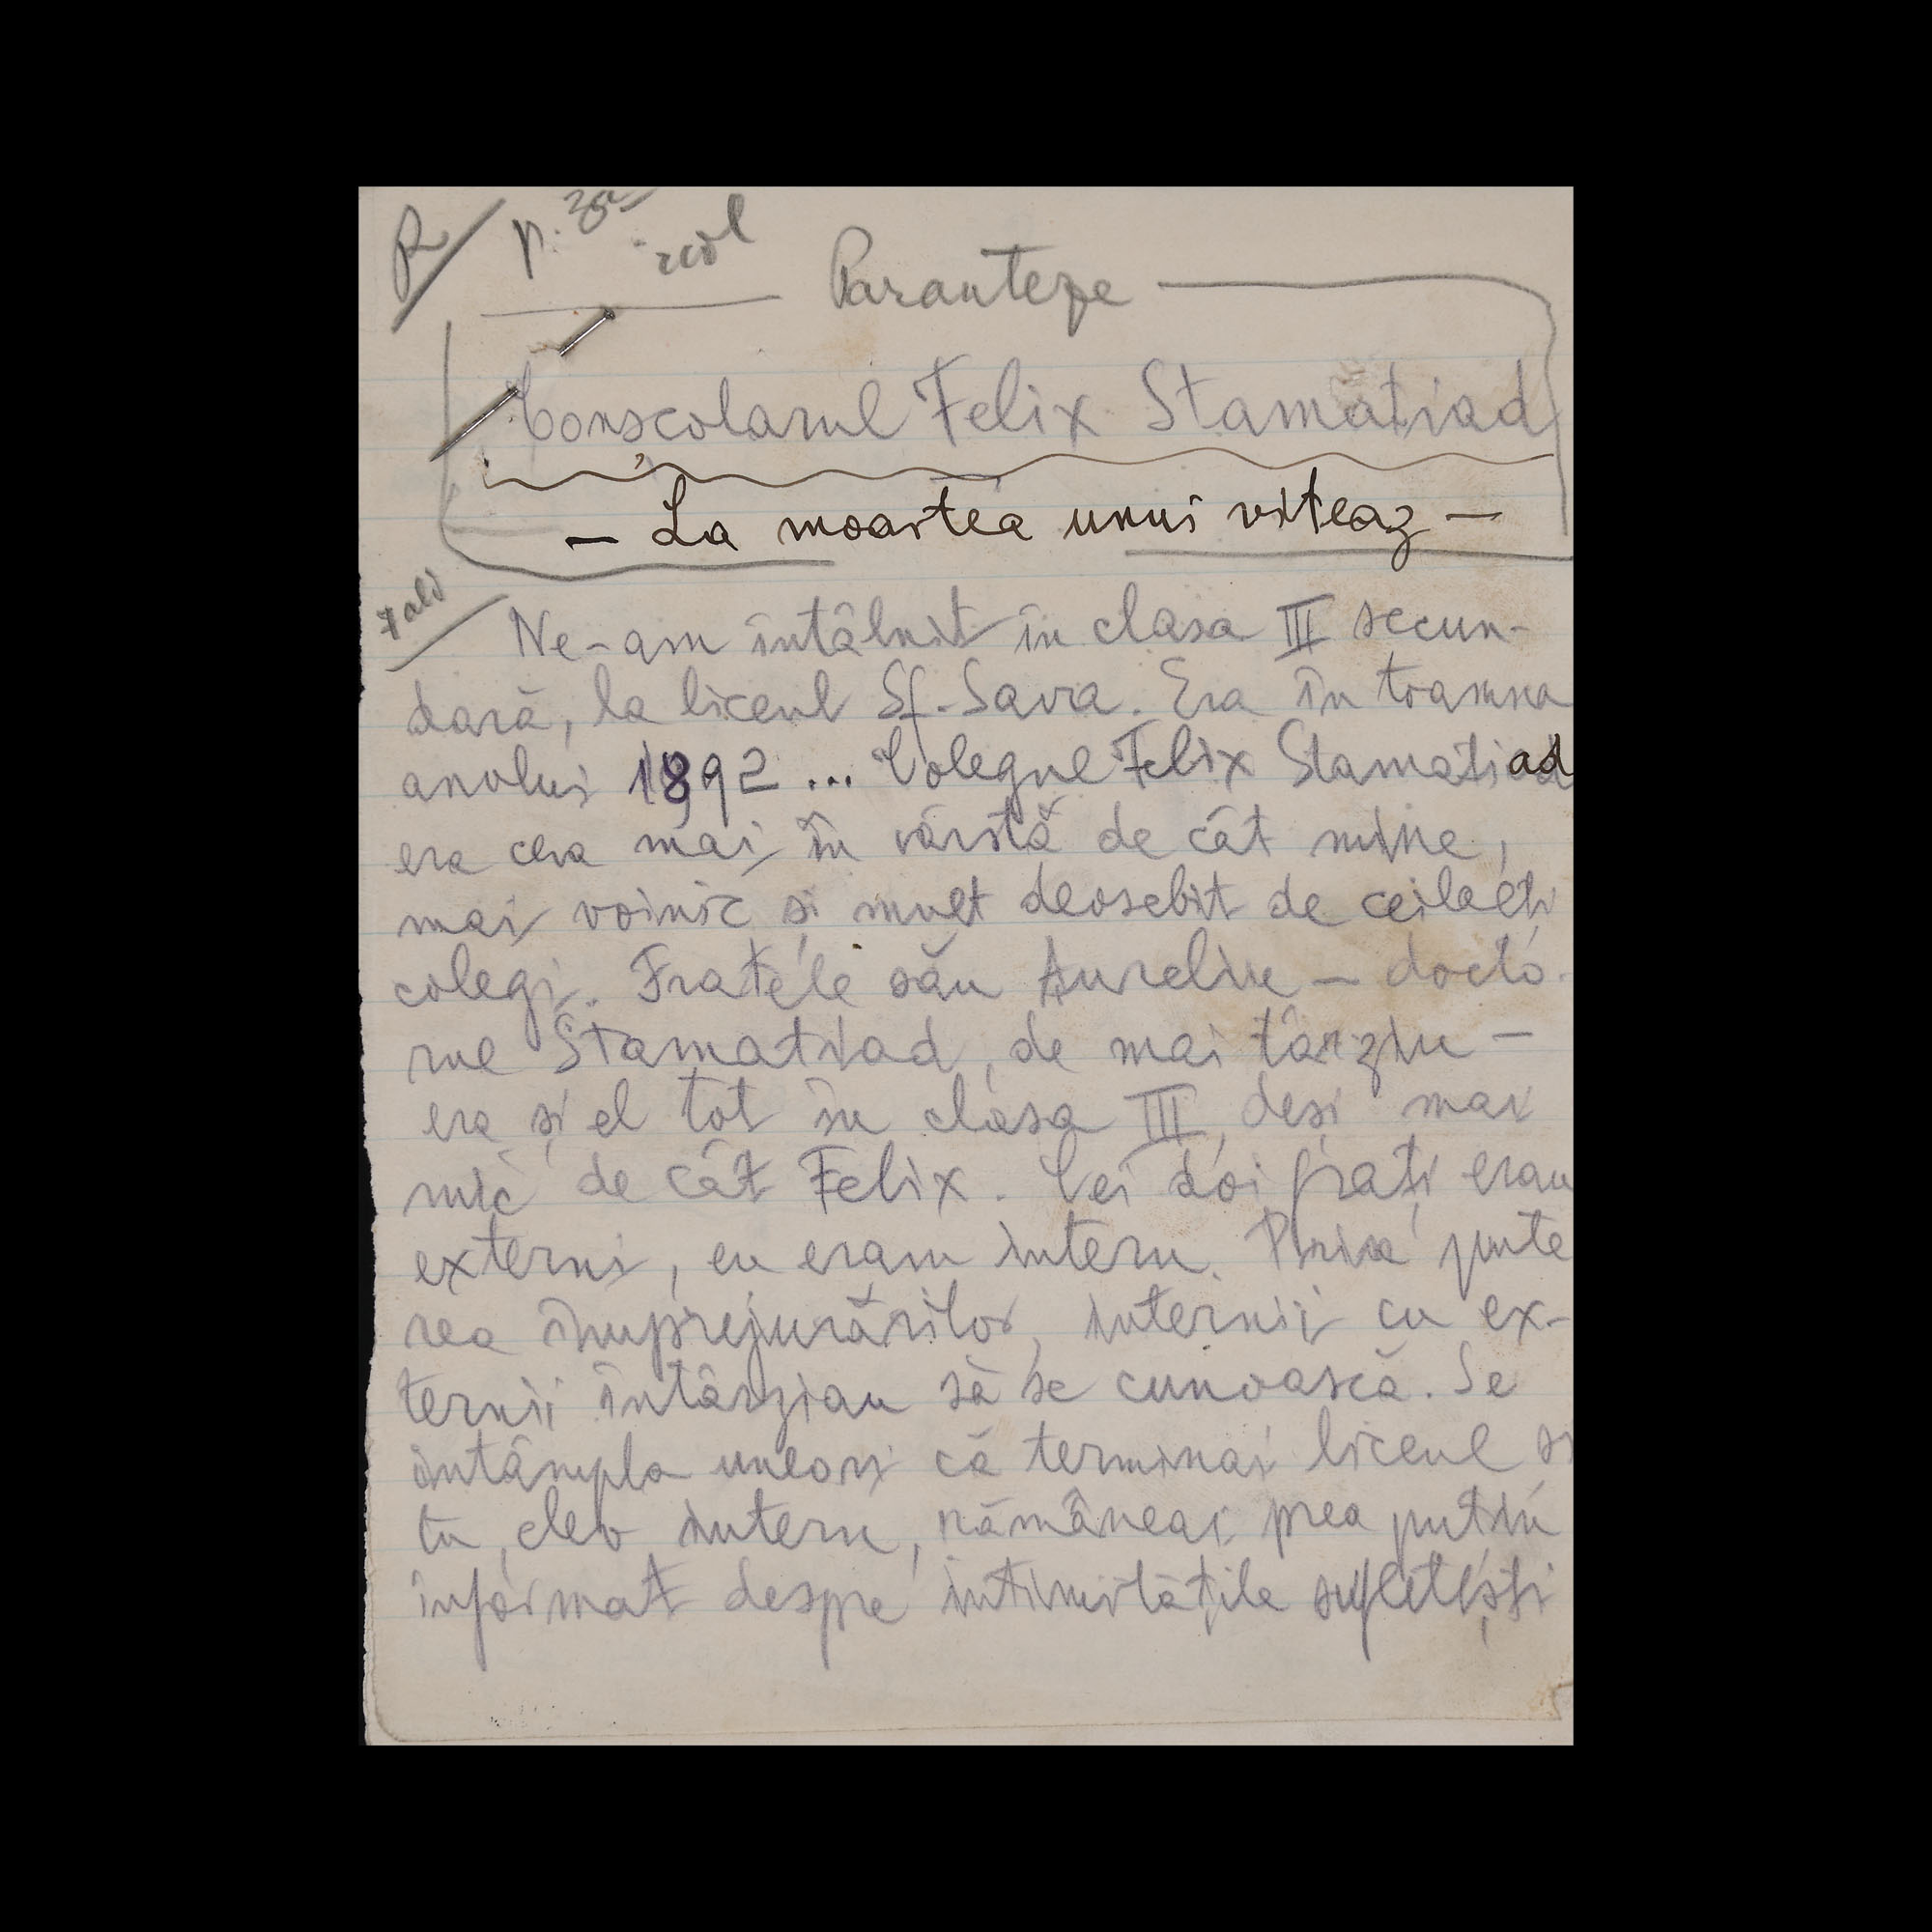 Paranteze
Conscolarul Felix Stamatiad
— La moartea unui viteaz —
Ne-am întâlnit în clasa III secun-
dară, la liceul Sf. Sava. Era în toamna
anului 1892 ... Colegul Felix Stamatiad
era ceva mai în vârstă de cât mine,
mai voinic și mult deosebit de ceilalți
colegi. Fratele său Aureliu — docto-
rul Stamatiad, de mai târziu —
era și el tot în clasa III, deși mai
mic de cât Felix. Cei doi frați erau
externi, eu eram intern. Prin pute
rea împrejurărilor, internii cu ex-
ternii întârziau să se cunoască. Se
întâmpla uneori că terminai liceul și
tu, elev intern, rămâneai prea puțin
informat despre intimitățile sufletești